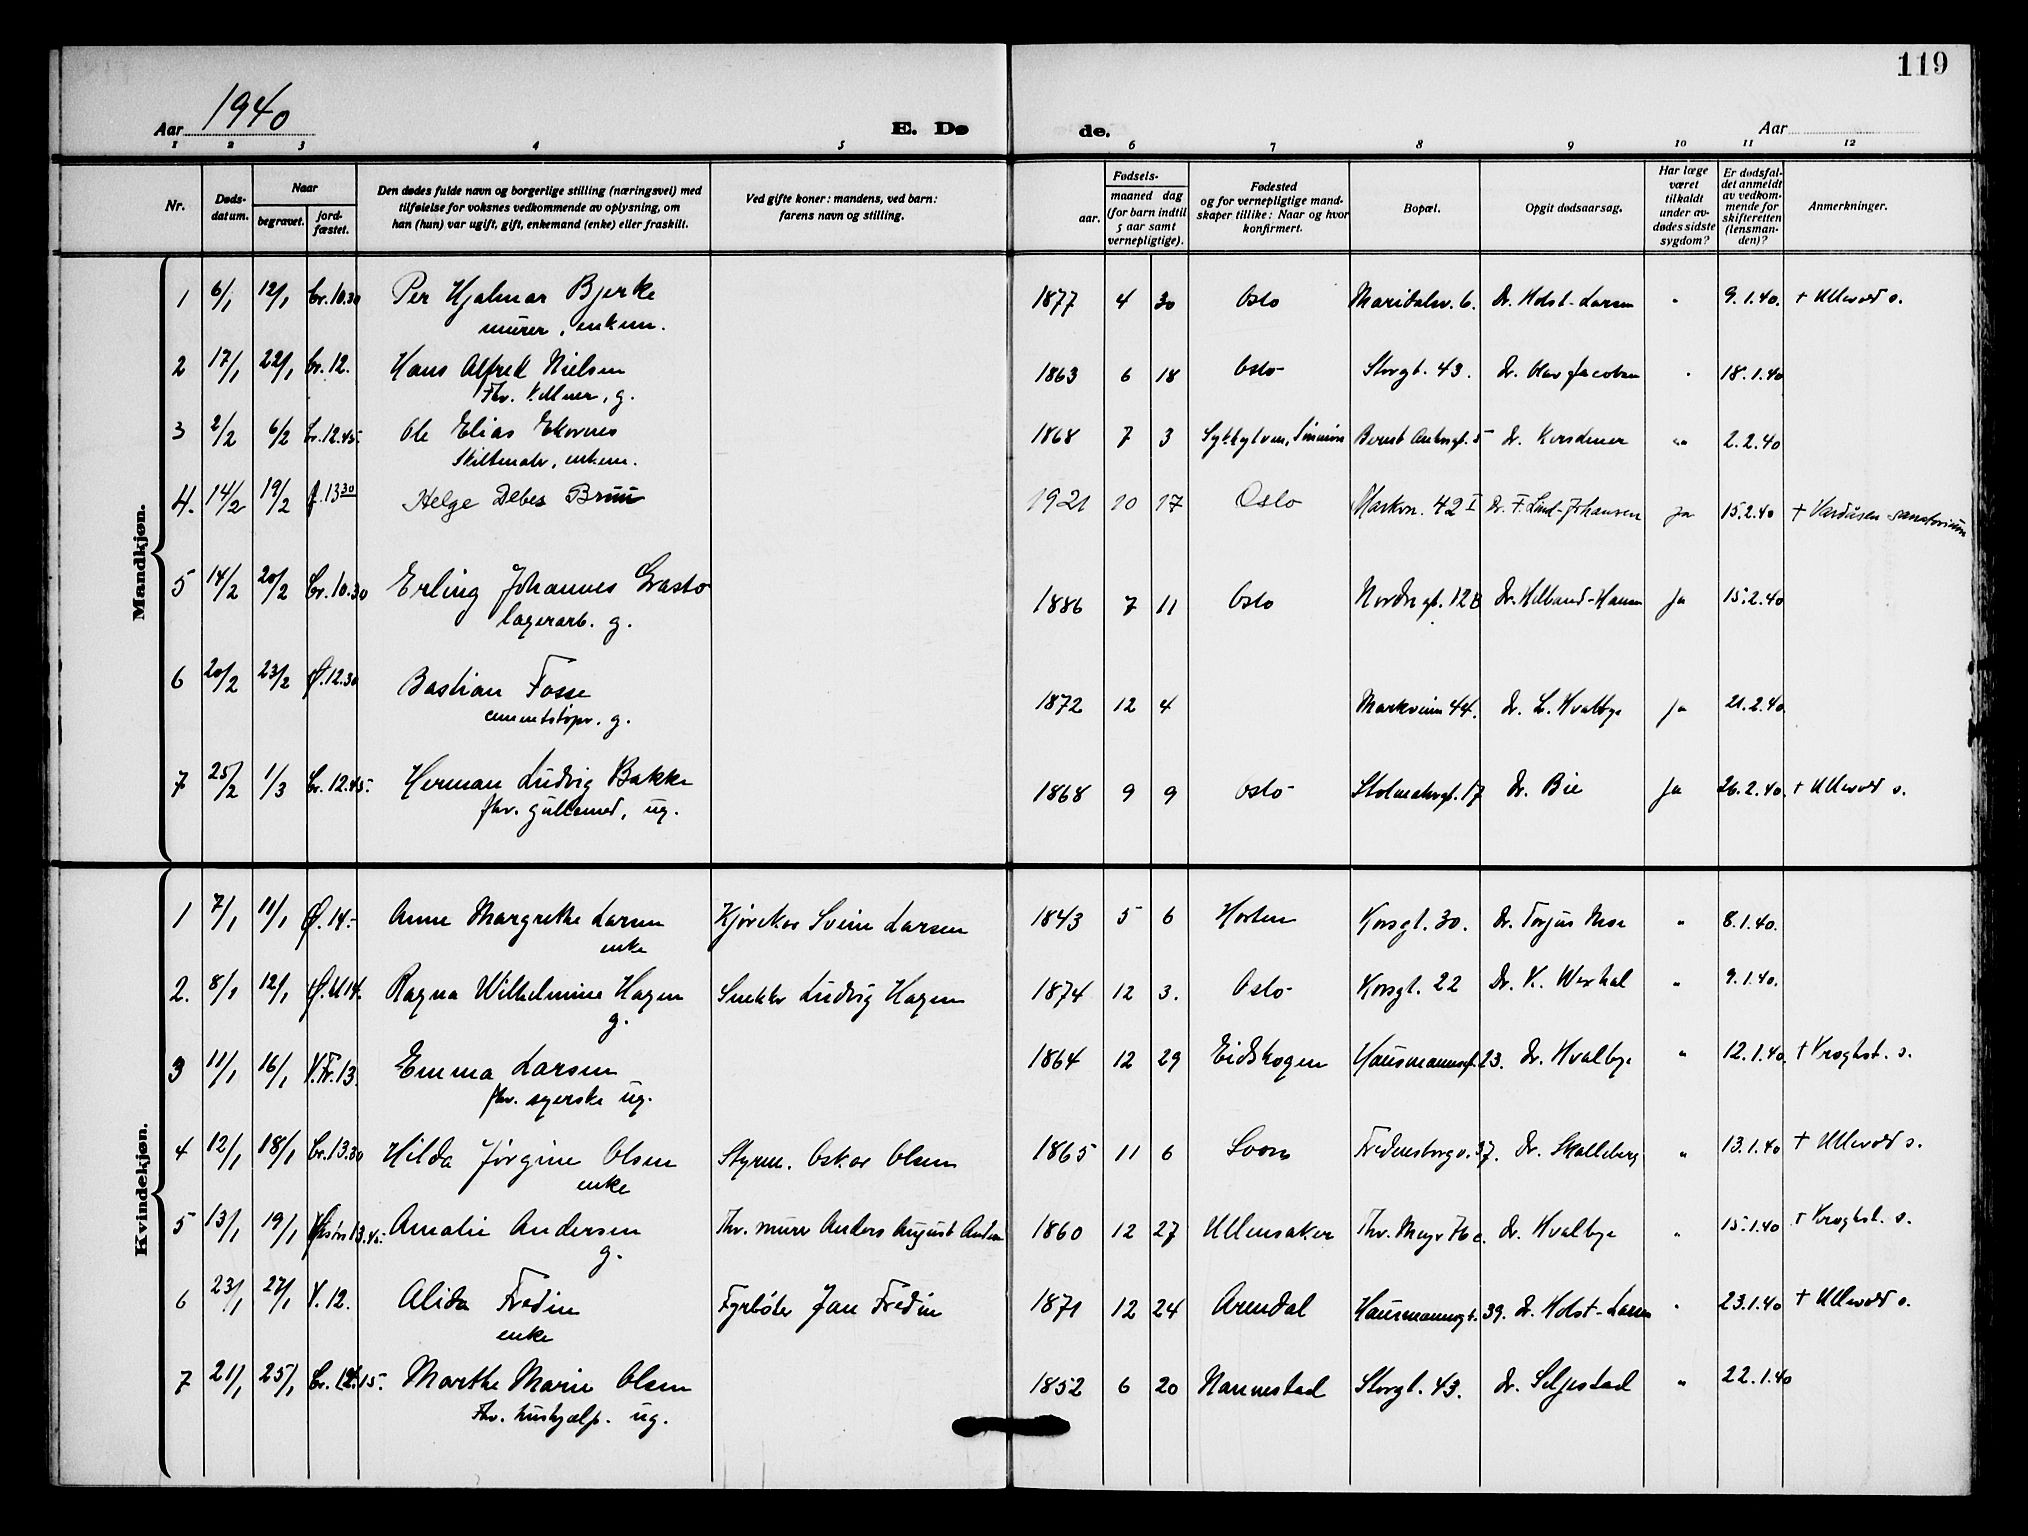 119
Aar 1940 E. Dø de. Aar
1 2 3 4 5 6 7 8 9 10 11 12
Nr. Døds-datum. Naar begravet. jord-fæstet. Den dødes fulde navn og borgerlige stilling (næringsvei) med tilføielse for voksnes vedkommende av oplysning, om han (hun) var ugift, gift, enkemand (enke) eller fraskilt. Ved gifte koner: mandens, ved barn: farens navn og stilling. aar. Fødsels- maaned dag (for barn indtil 5 aar samt vernepligtige). Fødested og for vernepligtige mand-skaper tillike: Naar og hvor konfirmert. Bopæl. Opgit dødsaarsag. Har læge været tilkaldt under av-dødes sidste sygdom? Er dødsfal-det anmeldt av vedkom-mende for skifteretten (lensman-den)? Anmerkninger.
Mandkjøn.
1 6/1 12/1 Cr. 10.30 Per Hjalmar Bjerke 1877 4 30 Oslo Maridalsv. 6. Dr. Holst-Larsen " 9.1.40. + Ullevål s.
murer, enkem.
2 17/1 22/1 Cr. 12. Hans Alfred Nielsen 1863 6 18 Oslo Storgt. 43. Dr. Jacobsen " 18.1.40
Fhv. kellner, g.
3 2/2 6/2 Cr. 12.45 Ole Elias Ekornes 1868 7 3 Sykkylven, Bernt Ankersgt. 5 Dr. " 2.2.40
Skiltmaler, enkem.
4. 14/2 19/2 13 30 Helge Debes Bruu 1921 10 17 Oslo Markvn. 42 I Dr. F. Lind-Johansen Ja 15.2.40 + Vardåsen sanatorium
5 14/2 20/2 Cr. 10.30 Erling Johannes Grasto 1886 7 11 Oslo Nordregt. 12B Dr. Ja 15.2.40
lagerarb. g.
6 20/2 23/2 Ø. 12.30 Bastian Fosse 1872 12 4 Markveien 44. Dr. L. Hvalbye Ja 21.2.40
cementstøper. g.
7 25/2 1/3 Cr. 12.45 Herman Ludvig Bakke 1868 9 9 Oslo Stolmakergt. 17 Dr. Bie Ja 26.2.40. + Ullevål s.
fhv. gullsmed, ug.
Kvindekjøn.
1 7/1 11/1 Ø. 14.- Anne Margrethe Larsen Kjørekar Svein Larsen 1843 5 6 Horten Korsgt. 30. Dr. Torjus Moe " 8.1.40.
enke
2. 8/1 12/1 Ø. U 14. Ragna Wilhelmine Hagen Snekker Ludvig Hagen 1874 12 3. Oslo Korsgt. 22 Dr. K. " 9.1.40.
g.
3 11/1 16/1 V. Fr. 13. Emma Larsen 1864 12 29 Eidskogen Hausmannsgt. 23. Dr. Hvalbye " 12.1.40. + Kroghst. s.
fhv. syerske ug.
4 12/1 18/1 Cr. 13.30 Hilda Jørgine Olsen Styrm. Oskar Olsen 1865 11 6 Soon Fredensborgv. 37. Dr. Skalleberg " 13.1.40 + Ullevål s.
enke
5 13/1 19/1 13.45 Amalie Andersen Fhv. murer Anders August Andersen 1860 12 27 Ullensaker Thv. Meyer 76 c. Dr. Hvalbye " 15.1.40 + Kroghst. s.
g.
6 23/1 27/1 V. 12. Alida Fredin Fyrbøter Jan Fredin 1871 12 24 Arendal Hausmannsgt. 39. Dr. Holst-Larsen " 23.1.40 + Ullevål s.
enke
7 21/1 25/1 Cr. 12.15. Marthe Marie Olsen 1852 6 20 Nannestad Storgt. 43. Dr. Seljestad " 22.1.40
Fhv. hushjælp. ug.